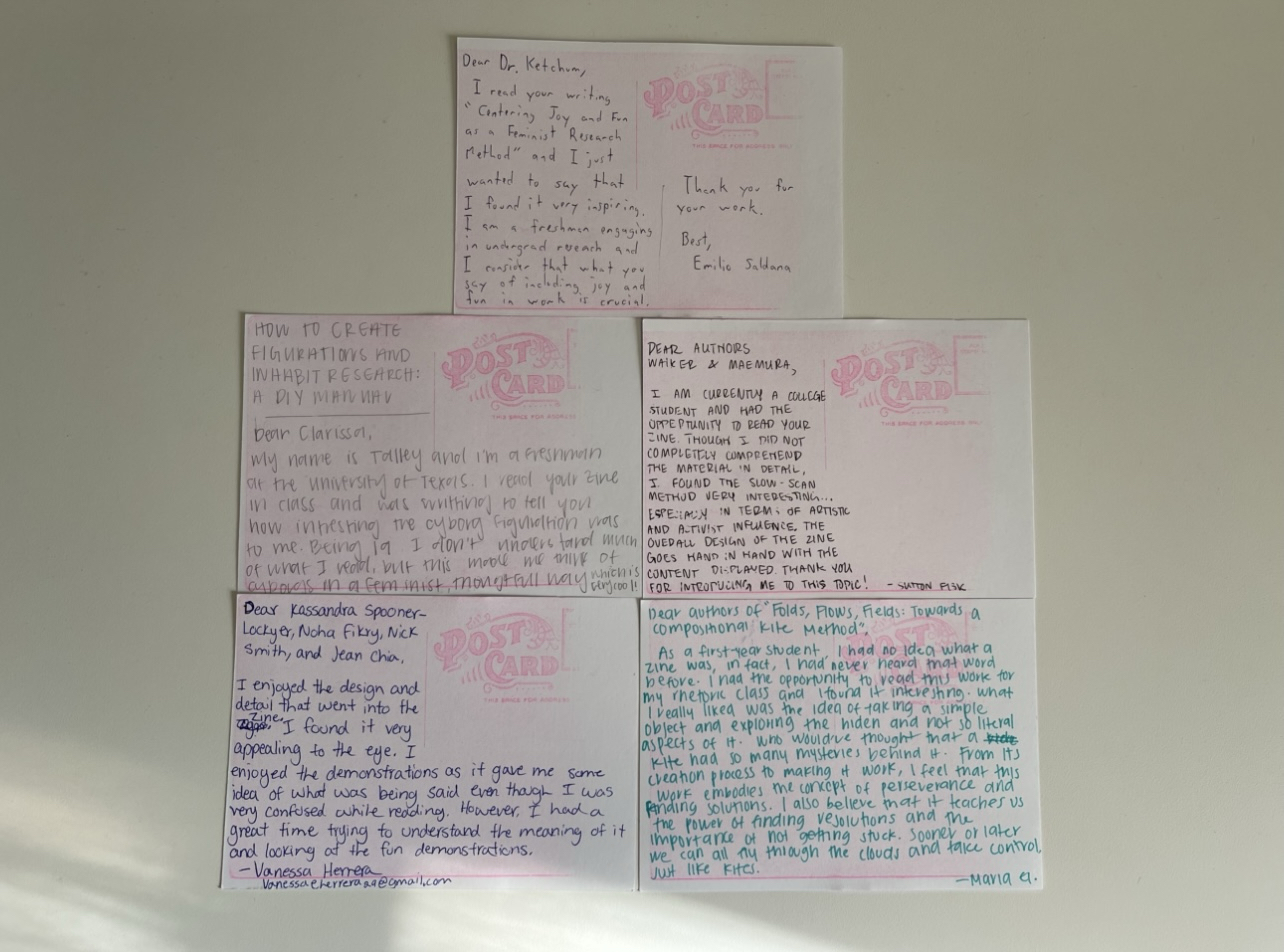 Dear Dr. Ketchum,
I read your writing
"Centering Joy and Fun
as a Feminist Research
Method" and I just
wanted to say that
I found it very inspiring.
I am a freshman engaging
in undergrad reseach and
I consider that what you
say of including joy and
fun in work is crucial.
POST
CARD
THIS SPACE FOR ADDRESS ONLY
Thank you for
your work.
Best,
Emilio Saldana
HOW TO CREATE
FIGURATIONS AND
INHABIT RESEARCH:
A DIY MANUAL
Dear Clarissa,
My name is Talley and I'm a freshman
at the university of Texas. I read your zine
in class and was writhing to tell you
how intresting the cyborg figuration was
to me. Being 19 I don't understand much
of what I read, but this made me think of
cyborgs in a feminist, thoughtfull way which is
very cool!
POST
CARD
THIS SPACE FOR ADDRESS
DEAR AUTHORS
WALKER & MAEMURA,
I AM CURRENTLY A COLLEGE
STUDENT AND HAD THE
OPPERTUNITY TO READ YOUR
ZINE. THOUGH I DID NOT
COMPLETLY COMPREHEND
THE MATERIAL IN DETAIL,
I FOUND THE SLOW-SCAN
METHOD VERY INTERESTING...
ESPECIALLY IN TERMS OF ARTISTIC
AND ACTIVIST INFLUENCE. THE
OVERALL DESIGN OF THE ZINE
GOES HAND IN HAND WITH THE
CONTENT DISPLAYED. THANK YOU
FOR INTRODUCING ME TO THIS TOPIC! - SUTTON FISK
POST
CARD
THIS SPACE FOR ADDRESS ONLY
Dear Kassandra Spooner-
Lockyer, Noha Fikry, Nick
Smith, and Jean Chia,
I enjoyed the design and
detail that went into the
zine. I found it very
appealing to the eye. I
enjoyed the demonstrations as it gave me some
idea of what was being said even though I was
very confused while reading. However, I had a
great time trying to understand the meaning of it
and looking at the fun demonstrations.
- Vanessa Herrera
POST
CARD
THIS SPACE FOR ADDRESS
Dear authors of "Folds, Flows, Fields: Towards a
compositional Kite Method",
As a first-year student, I had no idea what a
zine was, in fact, I had never heard that word
before. I had the opportunity to read this work for
my rhetoric class and I found it interesting. What
I really liked was the idea of taking a simple
object and exploring the hiden and not so literal
aspects of it. Who would've thought that a
kite had so many mysteries behind it. From its
creation process to making it work, I feel that this
work embodies the concept of perseverance and
finding solutions. I also believe that it teaches us
the power of finding resolutions and the
importance of not getting stuck. Sooner or later
we can all fly through the clouds and take control,
just like kites.
- Maria G.
POST
CARD